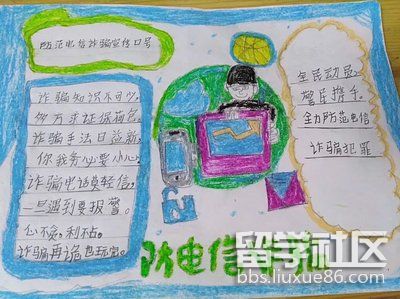 防范电信诈骗宣传口号
诈骗知识不可少,
多方求证保荷包。
诈骗手法日益新,
你我务必要小心,
诈骗电话莫轻信,
一旦遇到要报警。
心不贪,利不占,
诈骗再诡也玩完。
全民动员,
警民携手,
全力防范电信
诈骗犯罪
防电信
留学社区
bbs.liuxue86.com